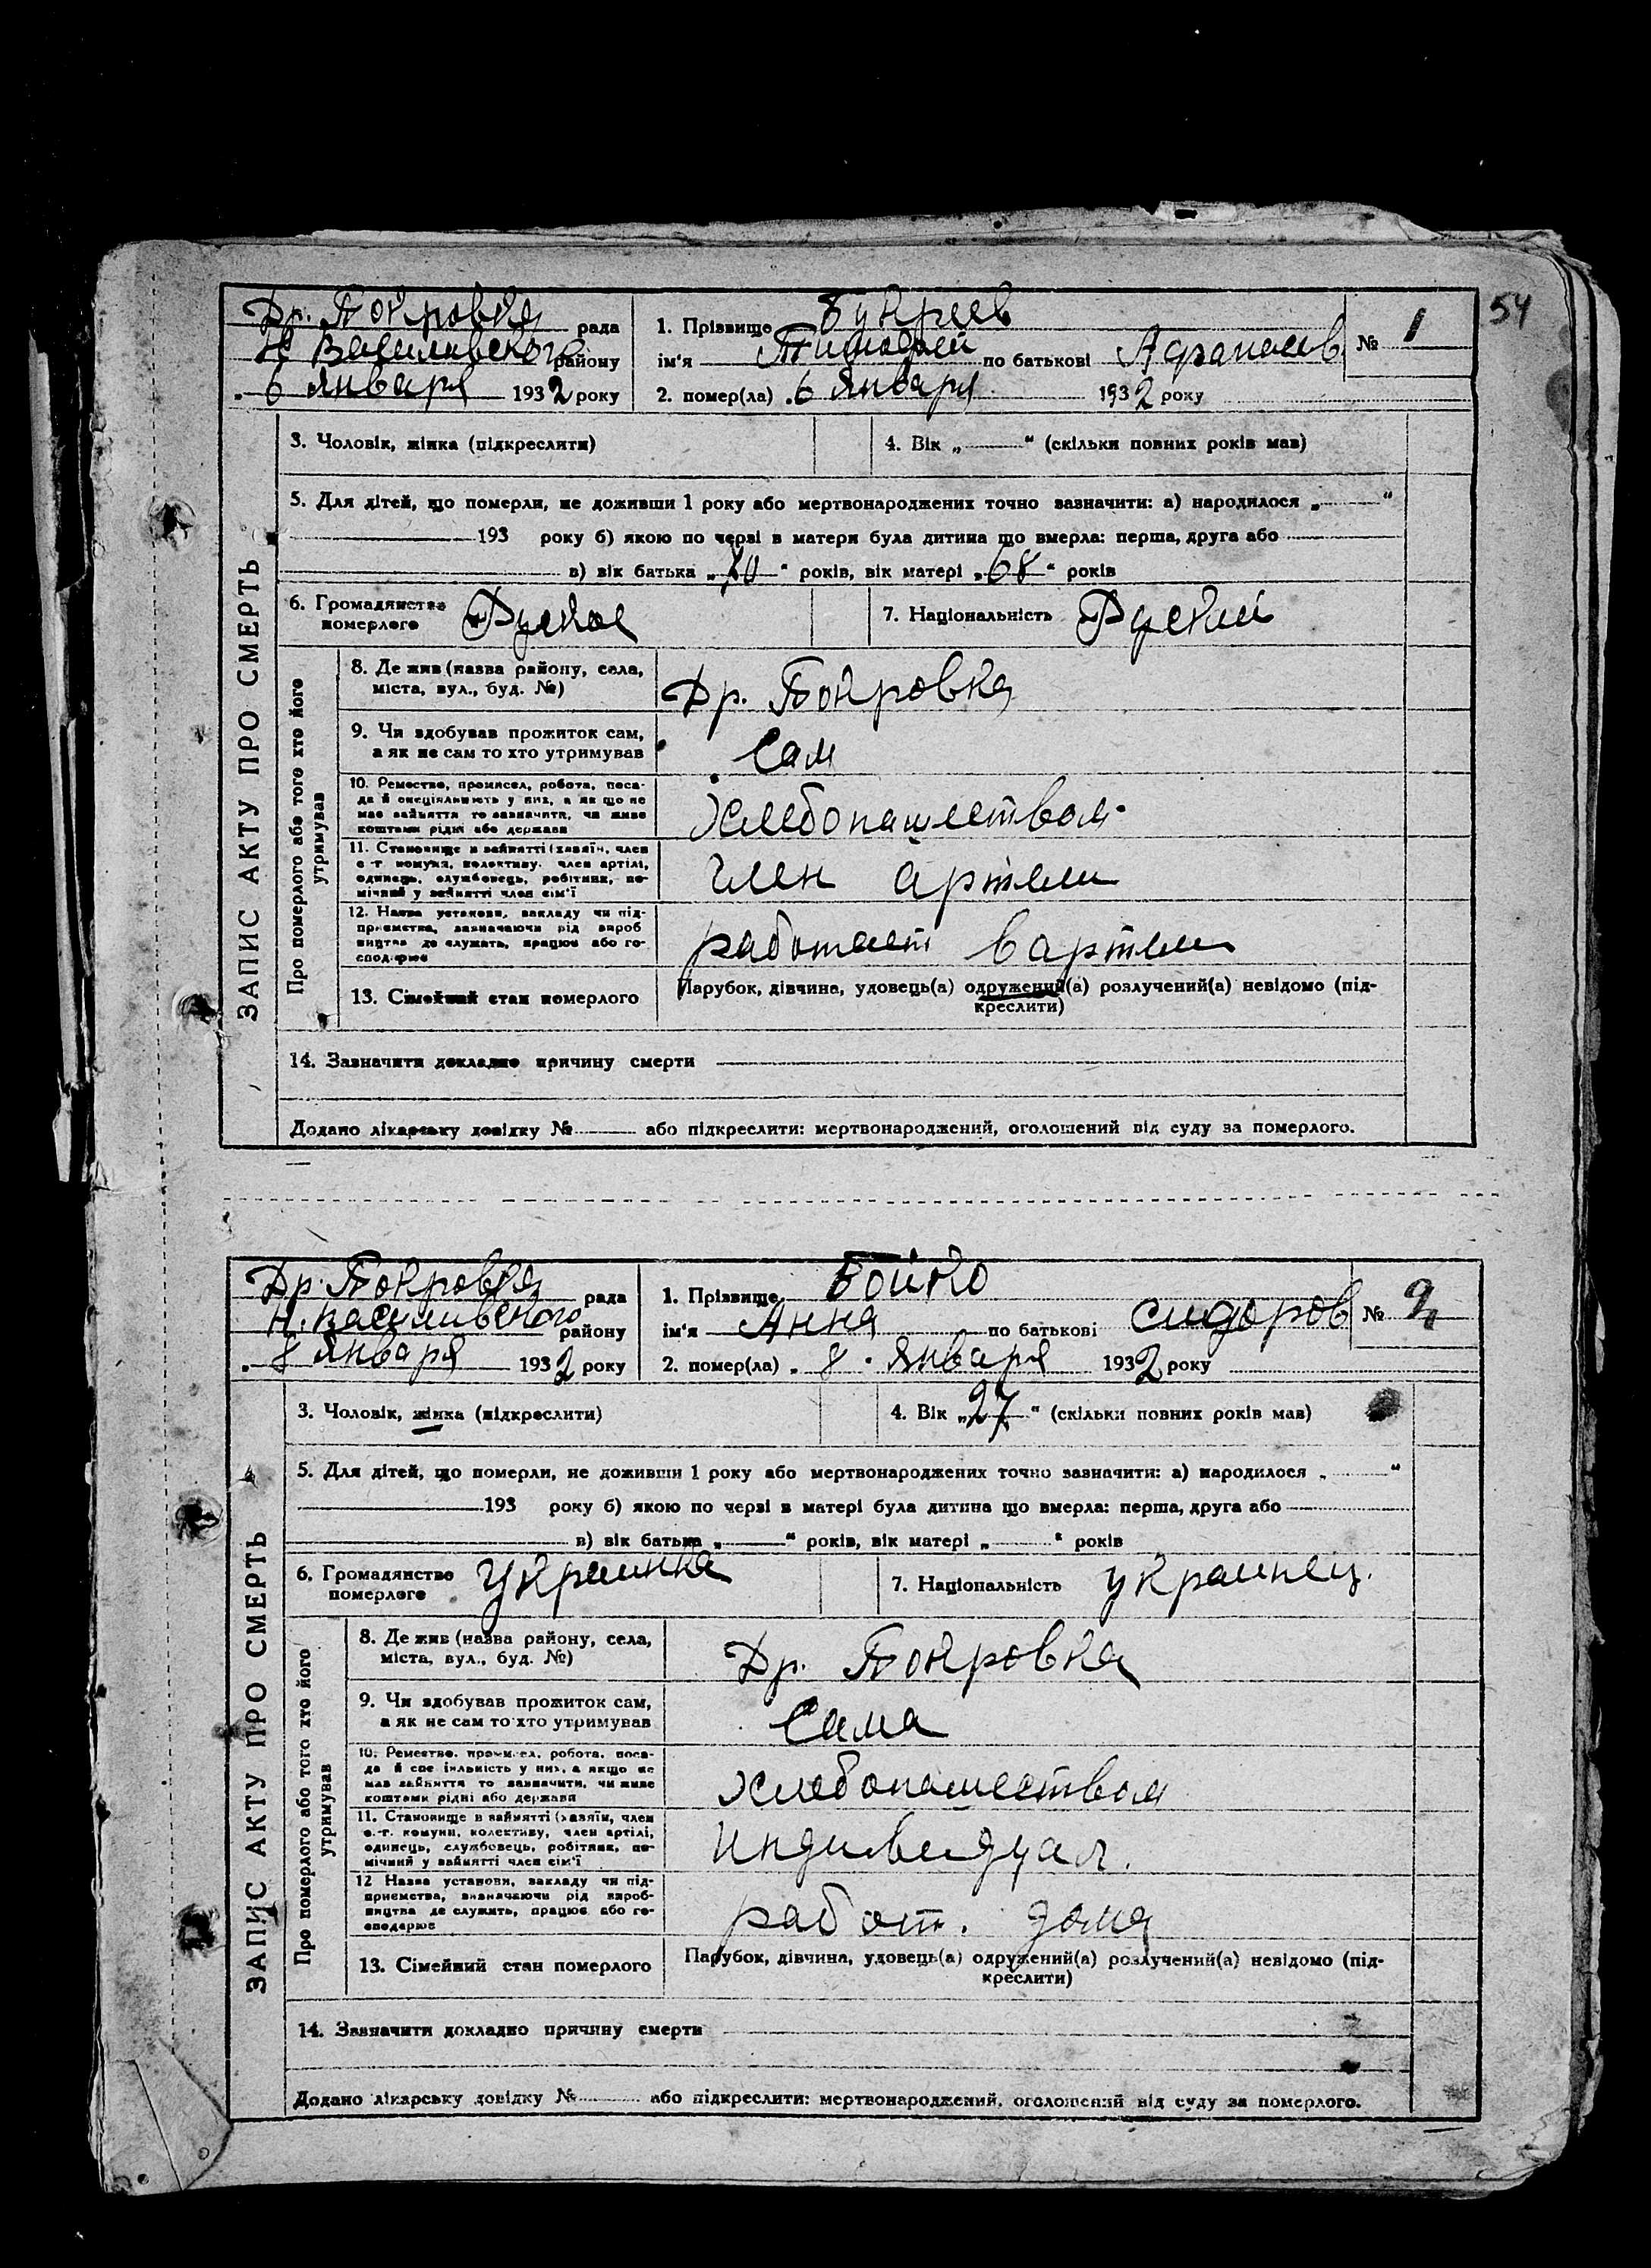 54
Др. Покровка рада
Н Василивского району
6 Января 1932 року
1. Прізвище Букреев
ім'я Тимофей по батькові Афанасев
№ 1
2. помер(ла) 6 Января 1932 року
ЗАПИС АКТУ ПРО СМЕРТЬ
3. Чоловік, жінка (підкреслити)
4. Вік „ “ (скільки повних років мав)
5. Для дітей, що померли, не доживши 1 року або мертвонароджених точно зазначити: а) народилося „ “
193 року б) якою по черзі в матери була дитина що вмерла: перша, друга або
в) вік батька „70“ років, вік матері „68“ років
6. Громадянство
померлого
Руское
7. Національність Руский
Про померлого або того хто його
утримував
8. Де жив (назва району, села,
міста, вул., буд. №)
Др. Покровка
9. Чи здобував прожиток сам,
а як не сам то хто утримував
Сам
10. Ремество, промисел, робота, поса-
да й специяльність у них, а як що не
має зайняття то зазначити, чи живе
коштами рідні або держави
Хлебопашеством
11. Становище в зайнятті (хазяїн, член
с.-г. комуни, колективу, член артілі,
одинець, службовець, робітник, по-
мічний у зайнятті член сім'ї
член артели
12. Назва установи, закладу чи під-
приємства, зазначаючи рід вироб
ництва де служить, працює або го-
сподарює
работает в артели
13. Сімейний стан померлого
Парубок, дівчина, удовець(а) одружений(а) розлучений(а) невідомо (під-
креслити)
14. Зазначити докладно причину смерти
Додано лікарську довідку № або підкреслити: мертвонароджений, оголошений від суду за померлого.
Др. Покровка рада
Н. Василивского району
8 Января 1932 року
1. Прізвище Бойко
ім'я Анна по батькові Сидоров
№ 2
2. помер(ла) 8 Января 1932 року
ЗАПИС АКТУ ПРО СМЕРТЬ
3. Чоловік, жінка (підкреслити)
4. Вік „27“ (скільки повних років мав)
5. Для дітей, що померли, не доживши 1 року або мертвонароджених точно зазначити: а) народилося „ “
193 року б) якою по черзі в матері була дитина що вмерла: перша, друга або
в) вік батька „ “ років, вік матері „ “ років
6. Громадянство
померлого
Украинка
7. Національність украинец.
Про померлого або того хто його
утримував
8. Де жив (назва району, села,
міста, вул., буд. №)
Др. Покровка
9. Чи здобував прожиток сам,
а як не сам то хто утримував
Сама
10. Ремество, промисел, робота, поса-
да й спеціяльність у них, а якщо не
має зайняття то зазначити, чи живе
коштами рідні або держави
Хлебопашеством
11. Становище в зайнятті (хазяїн, член
с.-г. комуни, колективу, член артілі,
одинець, службовець, робітник, по-
мічний у зайнятті член сім'ї
индиведуал.
12 Назва установи, закладу чи під-
приємства, визначаючи рід вироб-
ництва де служить, працює або го-
сподарює
работ. дома
13. Сімейний стан померлого
Парубок, дівчина, удовець(а) одружений(а) розлучений(а) невідомо (під-
креслити)
14. Зазначити докладно причину смерти
Додано лікарську довідку № або підкреслити: мертвонароджений, оголошений від суду за померлого.